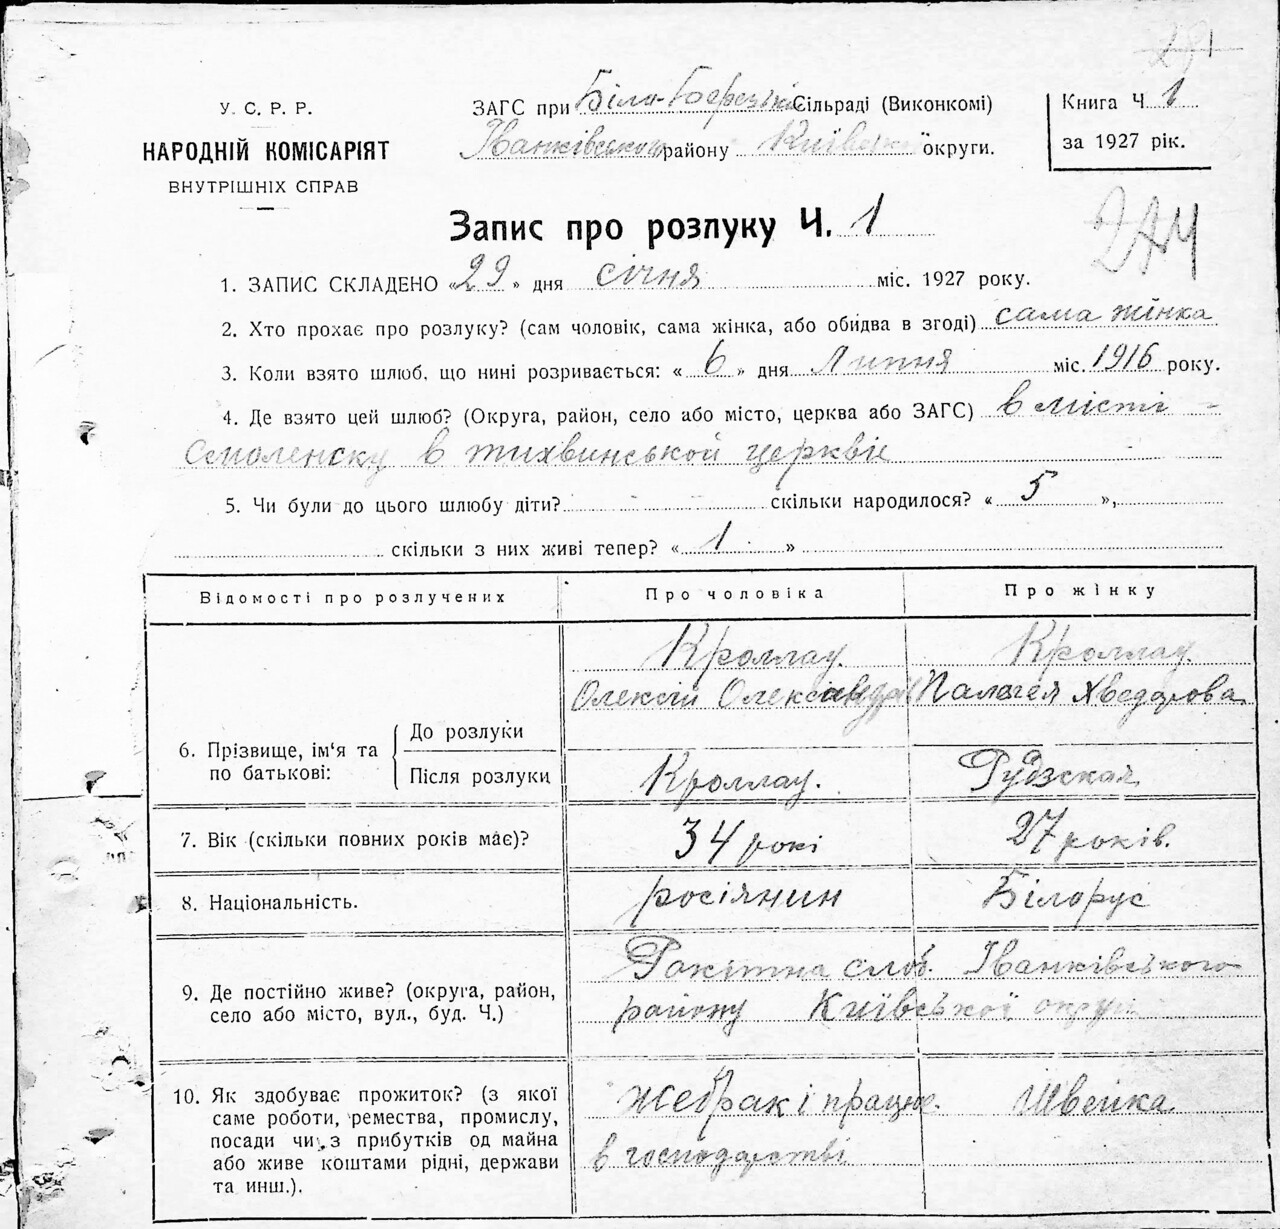 281
У. С. Р. Р.
НАРОДНІЙ КОМІСАРІЯТ
ВНУТРІШНІХ СПРАВ
ЗАГС при Біло-Березькій Сільраді (Виконкомі)
Іванківського району Київської округи.
Книга Ч. 1
за 1927 рік.
Запис про розлуку Ч. 1
244
1. ЗАПИС СКЛАДЕНО «29» дня січня міс. 1927 року.
2. Хто прохає про розлуку? (сам чоловік, сама жінка, або обидва в згоді) сама жінка
3. Коли взято шлюб, що нині розривається: «6» дня Липня міс. 1916 року.
4. Де взято цей шлюб? (Округа, район, село або місто, церква або ЗАГС) в місті
Смоленску в тихвинській церквіе
5. Чи були до цього шлюбу діти? скільки народилося? «5»,
скільки з них живі тепер? «1»
Відомості про розлучених
Про чоловіка
Про жінку
6. Прізвище, ім'я та по батькові:
До розлуки
Кроллау.
Олексій Олександр
Кроллау.
Палагея Хведарова
Після розлуки
Кроллау.
Рудзская
7. Вік (скільки повних років має)?
34 рокі
27 років.
8. Національність.
росіянин
Білорус
9. Де постійно живе? (округа, район,
село або місто, вул., буд. Ч.)
Ракітна слоб. Іванківського
району Київської округи
10. Як здобуває прожиток? (з якої
саме роботи, ремества, промислу,
посади чи з прибутків од майна
або живе коштами рідні, держави
та инш.).
жебрак і працює
в господарстві
Швейка